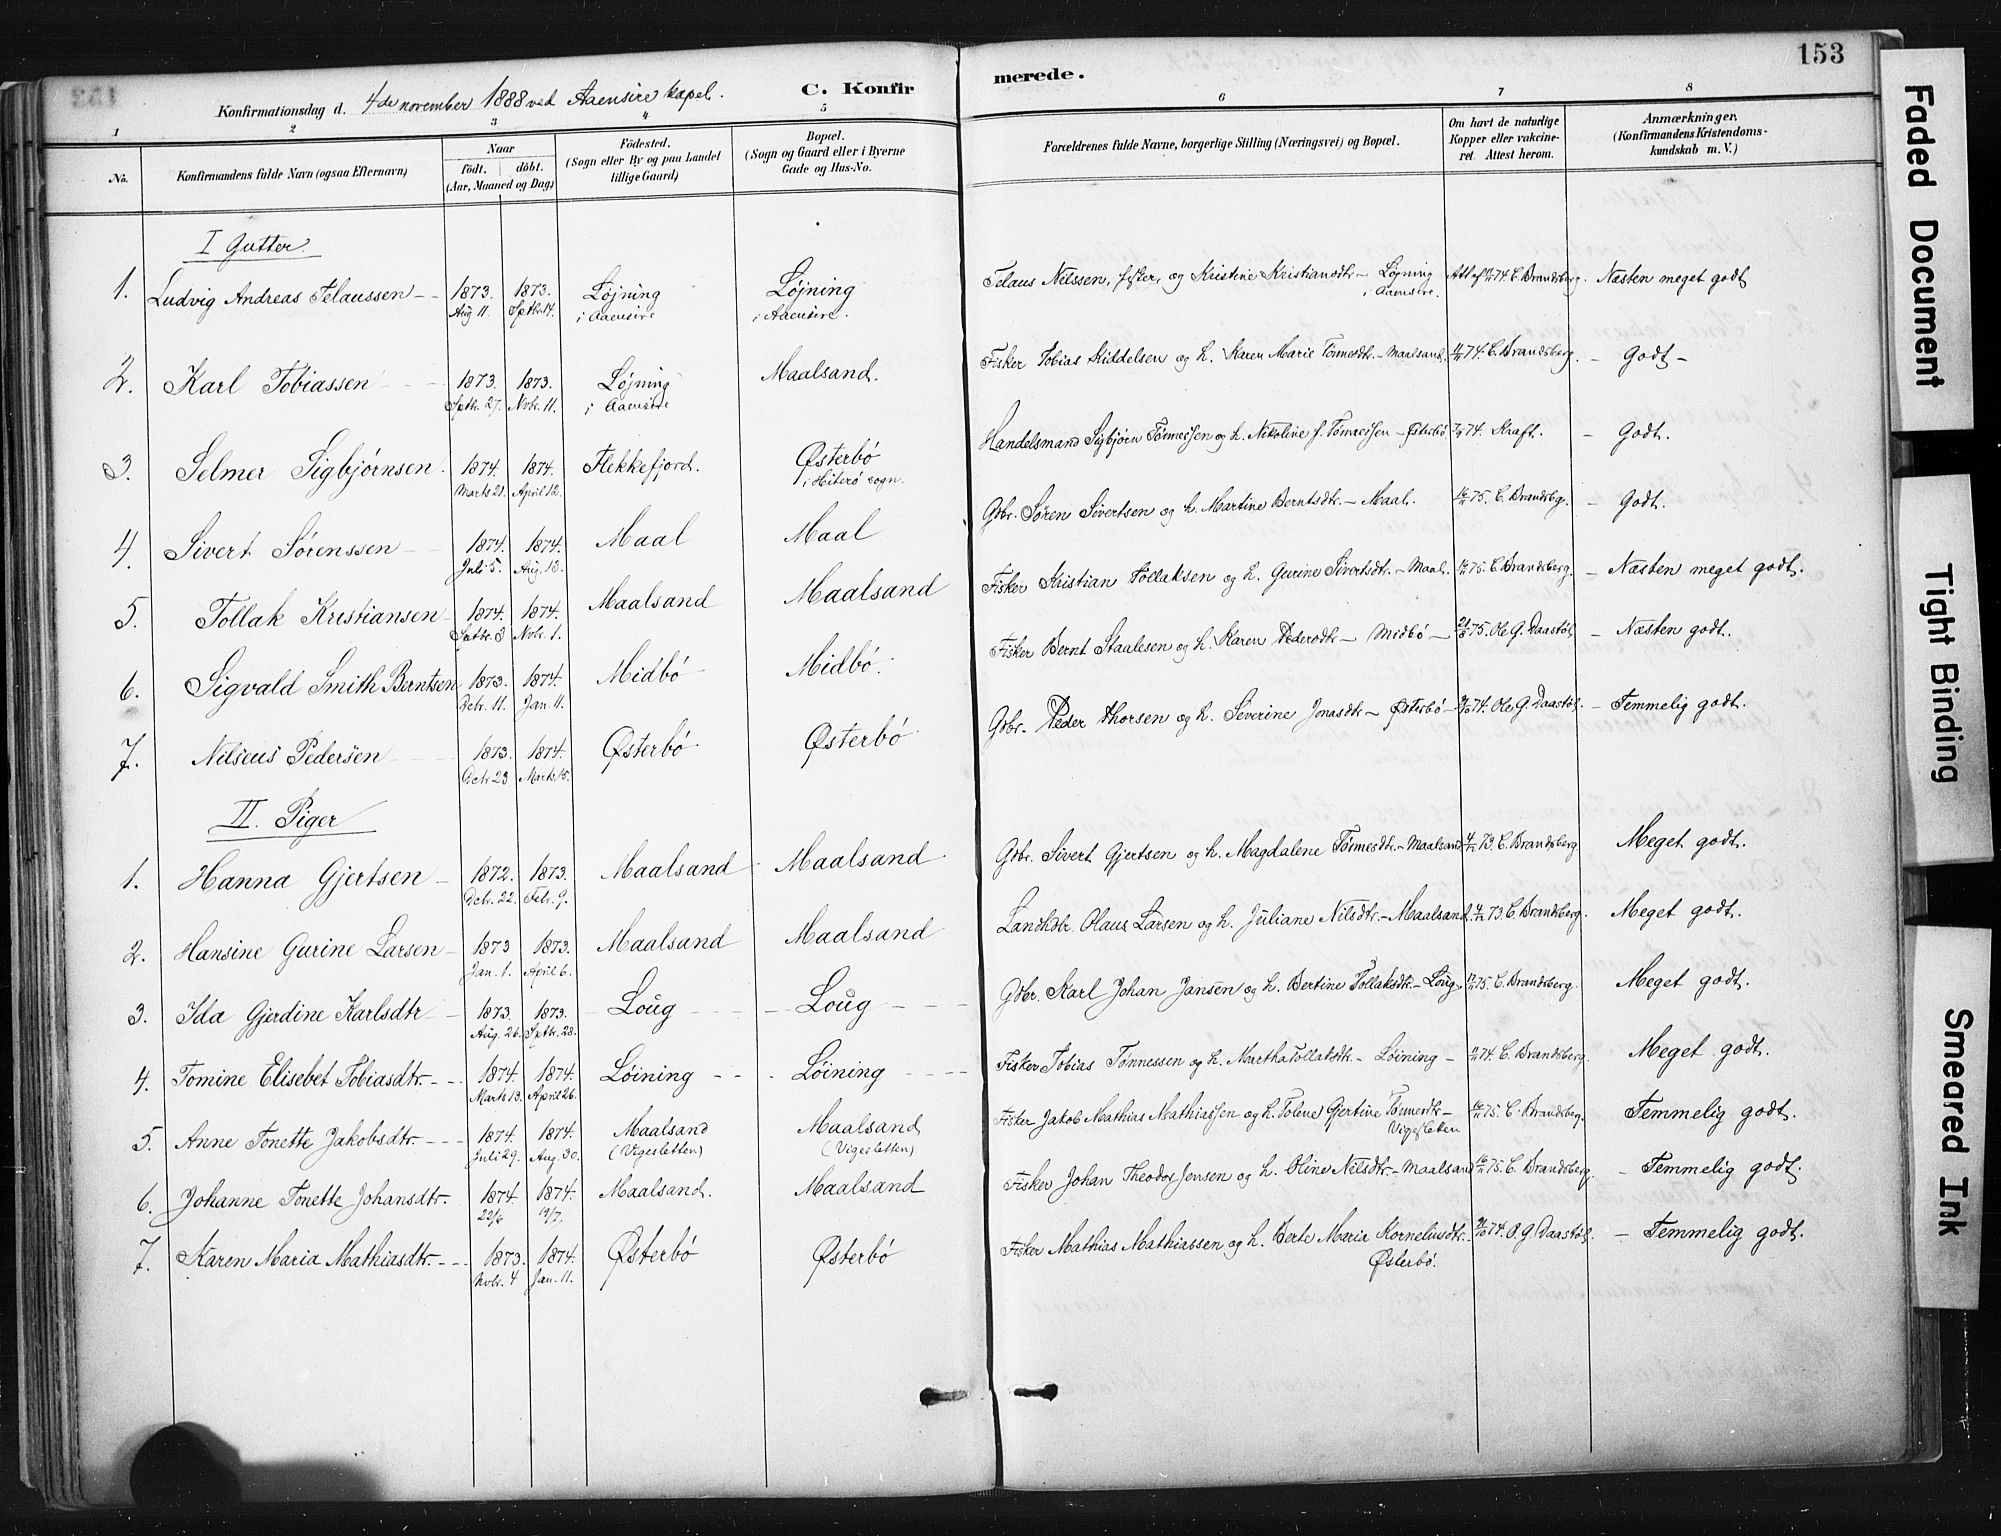 153
Konfirmationsdag d. 4de november 1888 ved Aaensire kapel. C. Konfirmerede.
1 2 3 4 5 6 7 8
No.
Konfirmandens fulde Navn (ogsaa Efternavn)
Naar
født. døbt.
(Aar, Maaned og Dag)
Fødested.
(Sogn eller By og paa Landet
tillige Gaard)
Bopæl.
(Sogn og Gaard eller i Byerne
Gade og Hus-No.
Forældrenes fulde Navne, borgerlige Stilling (Næringsvei) og Bopæl.
Om havt de naturlige
Kopper eller vakcine-
ret. Attest herom.
Anmærkninger.
(Konfirmandens Kristendoms-
kundskab m. V.)
I Gutter.
1. Ludvig Andreas Telaussen 1873. 1873. Løjning Løjning Telaus Nilssen, og Kristine Kristiansdtr – Løjning 74. C. Brandsberg. Næsten meget godt
Aug 11. Sptbr. 14. i Aaensire i Aaensire. i Aaensire.
2. Karl Tobiassen 1873. 1873. Løjning Maalsand. Fisker Tobias Kiddelsen og h. Karen Marie Tønnesdtr. – Maalsand. 74. C. Brandsberg. – Godt –
Sptbr. 27. Nvbr. 11. i Aaensire
3. Selmer Sigbjørnsen. 1874. 1874. Flekkefjord. Østerbø Handelsmand Sigbjørn Tønnessen og h. Nikoline f. Tønnessen – Østerbø 74. Kraft. – Godt.
Marts 21. April 12. i Hiterø sogn.
4. Sivert Sørenssen 1874. 1874. Maal Maal Gdbr. Søren Sivertsen og h. Martine Berntsdtr. – Maal. 75. C. Brandsbg. – Godt.
Juli 5. Aug. 13.
5. Tollak Kristiansen 1874. 1874. Maalsand Maalsand Fisker Kristian Tollaksen og h. Gurine Sivertsdtr. – Maal. 75. C. Brandsberg. – Næsten meget godt.
Sptbr. 3 Nvbr. 1.
6. Sigvald Smith Berntsen 1873. 1874. Midbø Midbø. Fisker Bernt Staalesen og h. Karen Pedersdtr – Midbø – 75. Ole G. Daastøl – Næsten godt.
Octr. 11. Jan. 11.
7. Nilseus Pedersen 1873. 1874. Østerbø Østerbø Gdbr. Peder Thorsen og h. Severine Jonasdtr – Østerbø – 74. Ole G. Daastøl. – Temmelig godt.
Octr 23 Marts 15.
II. Piger
1. Hanna Gjertsen 1872. 1873. Maalsand Maalsand Gdbr. Sivert Gjertsen og h. Magdalene Tønnesdtr. – Maalsand 73. C. Brandsberg Meget godt.
Octr. 22. Febr. 9.
2. Hansine Gurine Larsen 1873 1873. Maalsand Maalsand Landhdlr. Olaus Larsen og h. Juliane Nilsdtr. – Maalsand 73. C. Brandsberg. Meget godt.
Jan. 1. April 6.
3. Ida Gjerdine Karlsdtr 1873. 1873. Loug Loug Gdbr. Karl Johan Jansen og h. Bertine Tollaksdtr. – Loug 75. C. Brandsberg. Meget godt.
Aug. 26. Sptbr. 28.
4. Tomine Elisebet Tobiasdtr. 1874. 1874. Løining Løining Fisker Tobias Tønnessen og h. Martha Tollaksdtr. – Løining – 74. C. Brandsberg. Meget godt.
Marts 13. April 26.
5. Anne Tonette Jakobsdtr. 1874. 1874. Maalsand Maalsand Fisker Jakob Mathias Mathiassen og h. Tolene Gjertine Tønnesdtr – 75. C. Brandsberg. Temmelig godt.
Juli 29. Aug. 30. (Vigesletten) (Vigesletten) Vigesleten
6. Johanne Tonette Johansdtr. 1874 1874. Maalsand. Maalsand Fisker Johan Theodor Jensen og h. Oline Nilsdtr. – Maalsand 75. C. Brandsberg. – Temmelig godt.
22/6 19/7.
7. Karen Maria Mathiasdtr. 1873. 1874. Østerbø Østerbø Fisker Mathias Mathiassen og h. Berte Maria Korneliusdtr. 74. O. G. Daastøl. – Temmelig godt.
Nvbr. 4 Jan. 11. Østerbø.
Faded Document
Tight Binding
Smeared Ink